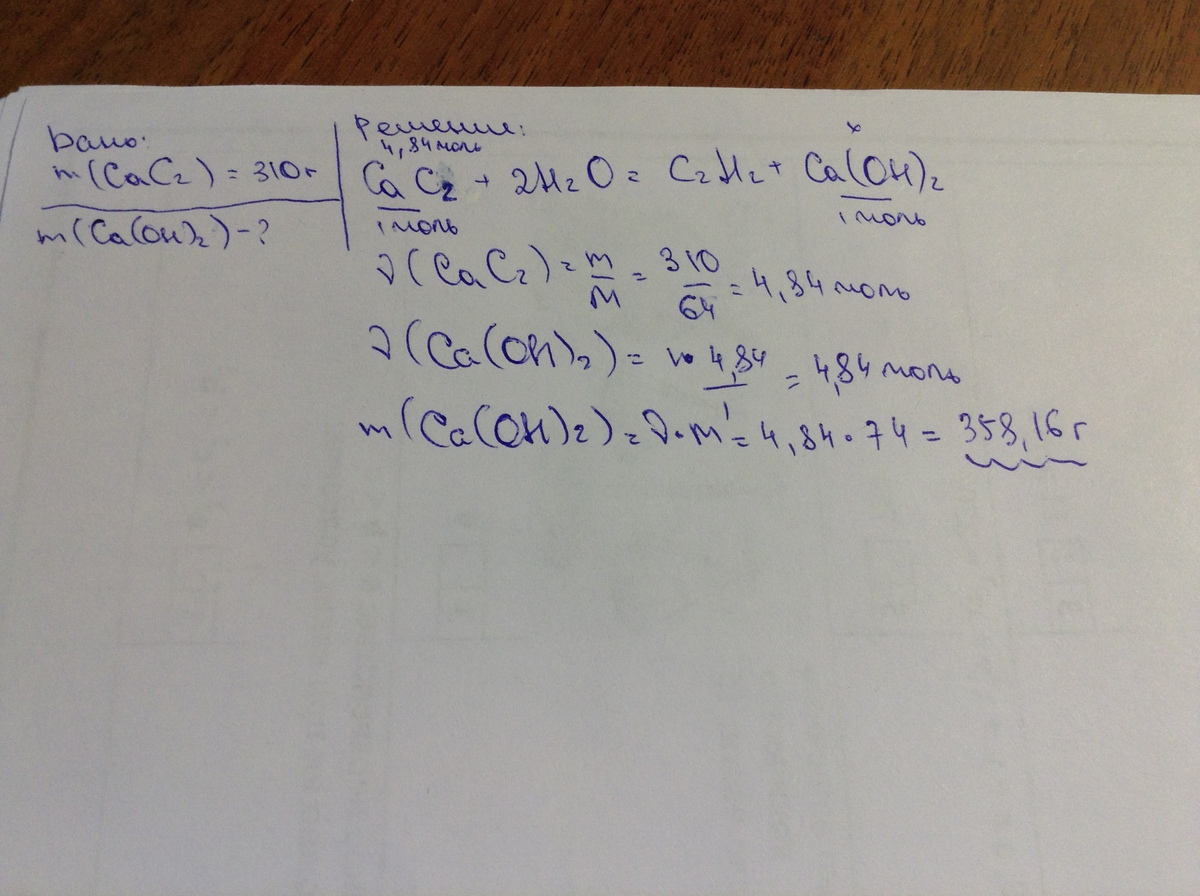 Дано:
m(CaC₂) = 310 г
m(Ca(OH)₂) - ?
Решение:
4,84 моль x
CaC₂ + 2H₂O = C₂H₂ + Ca(OH)₂
1 моль 1 моль
ν(CaC₂) = m/M = 310/64 = 4,84 моль
ν(Ca(OH)₂) = 1·4,84/1 = 4,84 моль
m(Ca(OH)₂) = ν·M = 4,84·74 = 358,16 г